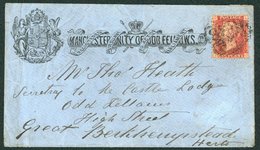 MANCHESTER UNITY OF ODDFELLOWS
Mr Thos Heath
Secretary to the Castle Lodge
Odd Fellows
High Street
Great Berkhempstead
Herts